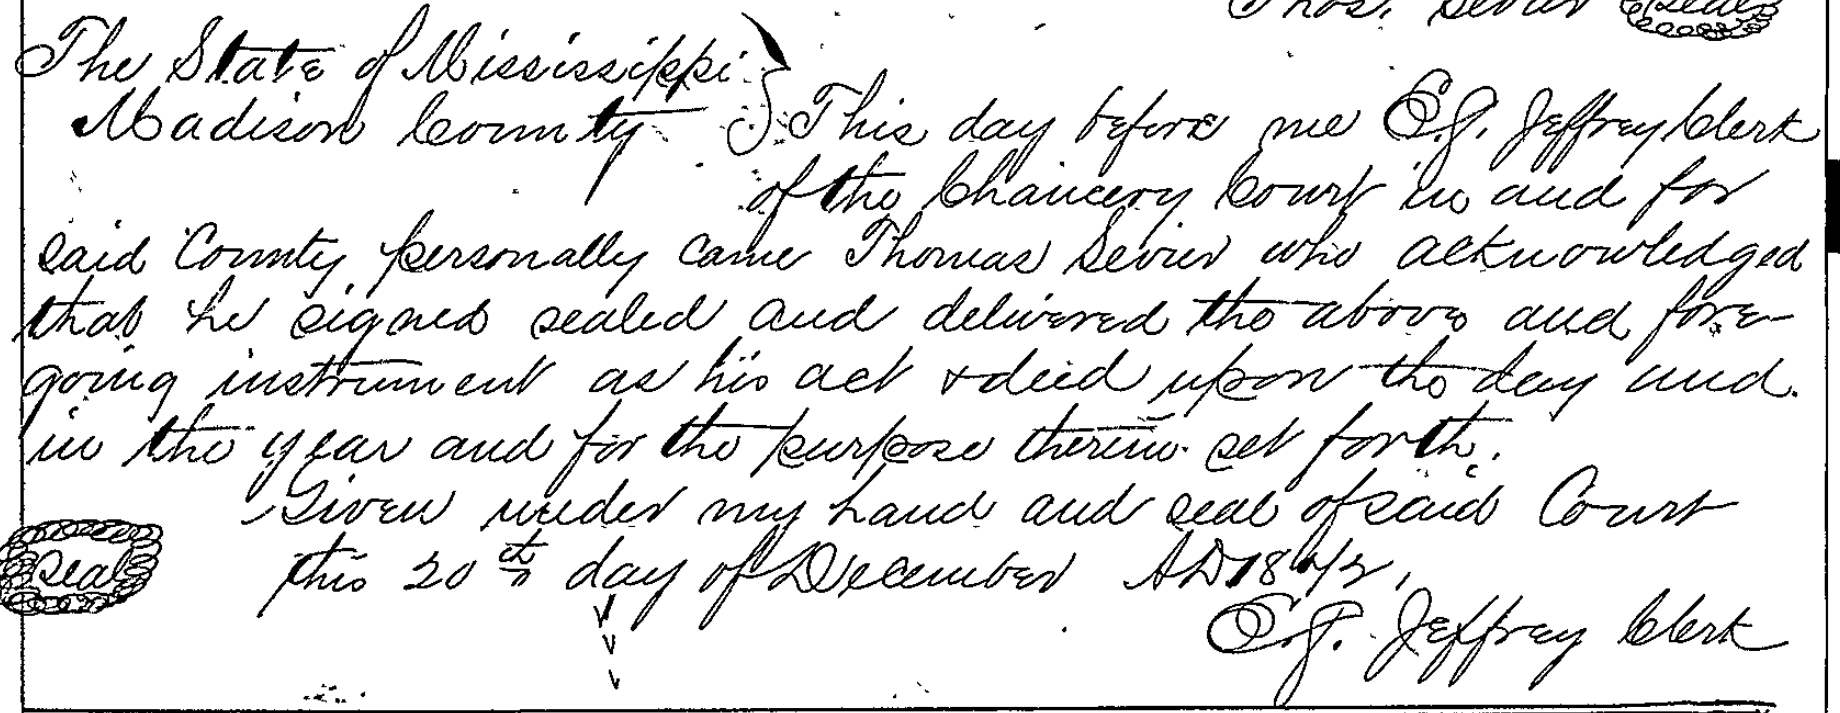 Thos. Sevier Seal
The State of Mississippi
Madison County } This day before me E.J. Jeffrey Clerk
of the Chancery Court in and for
said County personally came Thomas Sevier who acknowledged
that he signed sealed and delivered the above and fore-
going instrument as his act & deed upon the day and
in the year and for the purpose therein set forth.
Given under my hand and seal of said Court
Seal this 20th day of December AD
E.J. Jeffrey Clerk